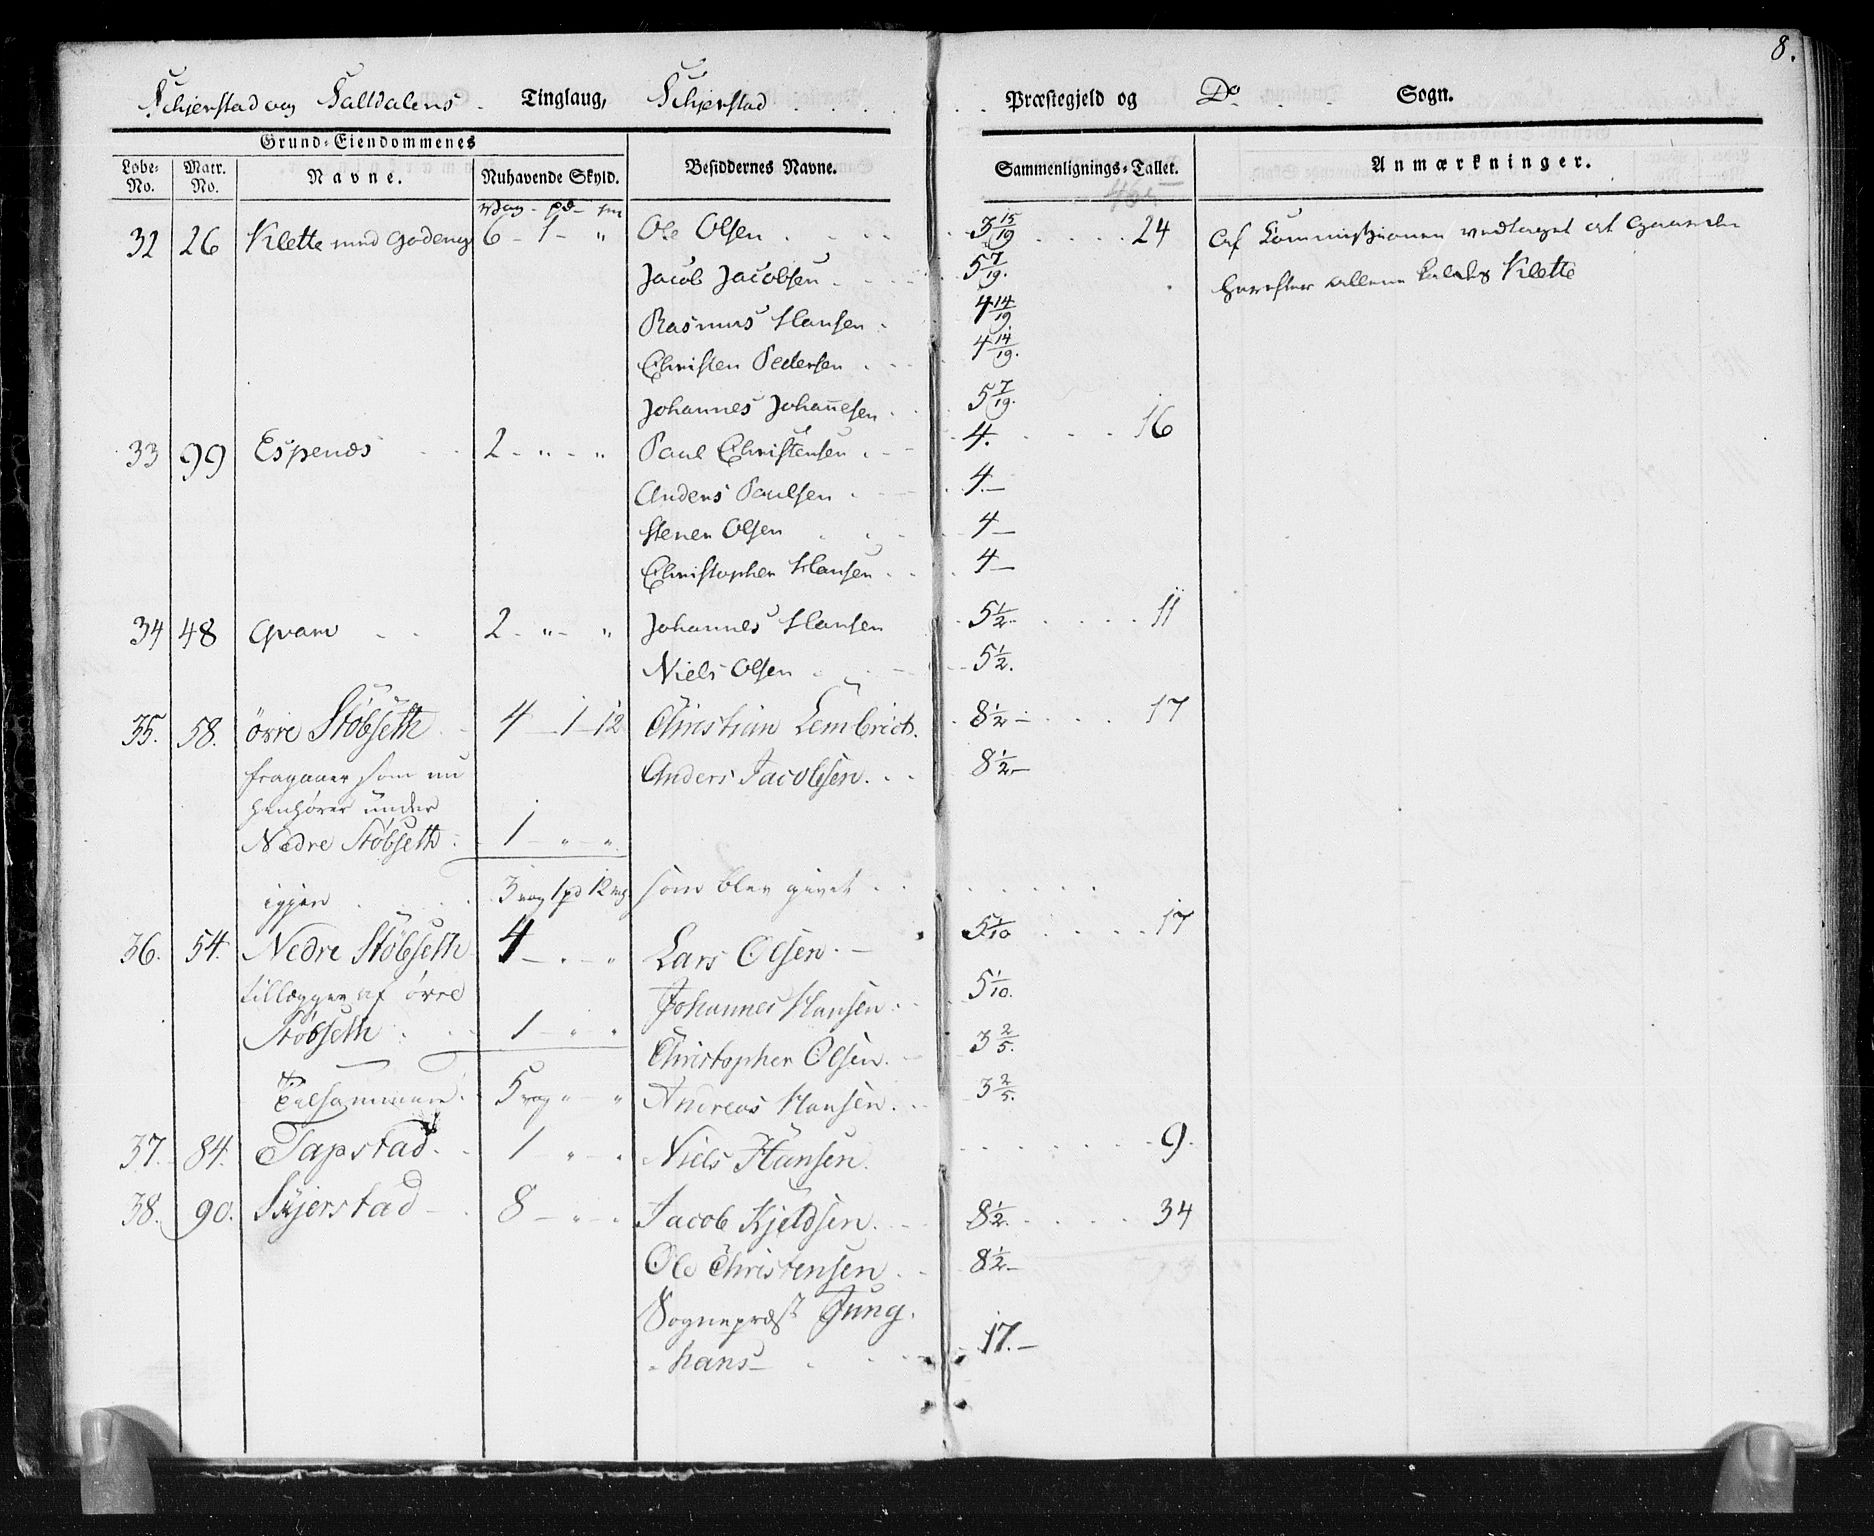 8.
Schjerstad og Saltdalens Tinglaug, Schjerstad Præstegjeld og Do Sogn.
Grund-Eiendommenes
Løbe-No. Matr. No. Navne. Nuhavende Skyld. Besiddernes Navne. Sammenlignings-Tallet. Anmærkninger.
Vog - pd - mk
32 26 Klette med Godeng 6 - 1 - " Ole Olsen 3 15/19 24 Af Kommissionen vedtaget at Gaarden
Jacob Jacobsen 5 7/19. herefter allene kaldes Klette
Rasmus Hansen 4 14/19
Christen Pedersen 4 14/19.
Johannes Johannesen 5 7/19.
33 99 Espenæs 2 - " - " Paul Christensen 4. 16
Anders Paulsen 4.—
Stener Olsen 4—
Christopher Hansen 4—
34 48 Qvam 2 - " - " Johannes Hansen 5 1/2 11
Niels Olsen 5 1/2.
35. 58. övre Stöbseth 4 — 1 — 12 Christian Lembrict. 8 1/2 17
fragaaer som nu Anders Jacobsen 8 1/2—
henhörer under
Nedre Stöbseth 1 — " — "
igjen 3 vog 1 pd 12 mk som blev givet
36. 54. Nedre Stöbseth 4 — " — " Lars Olsen 5 1/10 17
tillægges af övre Johannes Hansen 5 1/10.
Stöbseth 1 — " — " Christopher Olsen 3 2/5.
Tilsammene 5 vog " — " Andreas Hansen 3 2/5.
37. 84. Tapstad 1 — " — " Niels Hansen 9.
38. 90. Skjerstad 8 — " — " Jacob Kjeldsen 8 1/2 34
Ole Christensen 8 1/2—
Sognepræst Jung-
hans 17.—